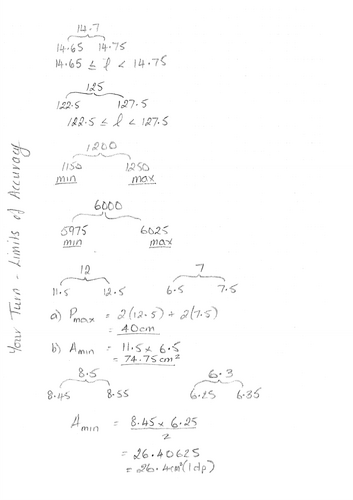 Your Turn - Limits of Accuracy
14.7
14.65 14.75
14.65 ≤ l < 14.75
125
122.5 127.5
122.5 ≤ l < 127.5
1200
1150 1250
min max
6000
5975 6025
min max
12 7
11.5 12.5 6.5 7.5
a) Pmax = 2(12.5) + 2(7.5)
= 40cm
b) Amin = 11.5 x 6.5
= 74.75cm²
8.5 6.3
8.45 8.55 6.25 6.35
Amin = 8.45 x 6.25
2
= 26.40625
= 26.4cm²(1dp)